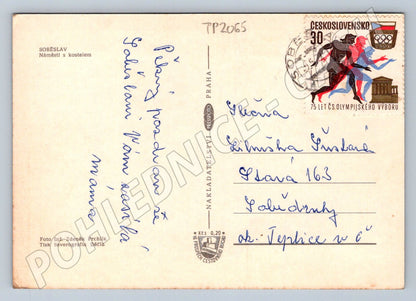 TP2065
SOBĚSLAV
Náměstí s kostelem
Pěkný pozdrav ze
Soběslavi Vám zasílá
máma
Foto
Tisk Severografia Děčín
NAKLADATELSTVÍ ORBIS PRAHA
Kčs 0,20
ČESKOSLOVENSKO
30
75 LET ČS. OLYMPIJSKÉHO VÝBORU
SOBĚ
Slečna
Libuška Šustar
Stará 163
Sobědruhy
ok. Teplice v č
POHLEDNICE-